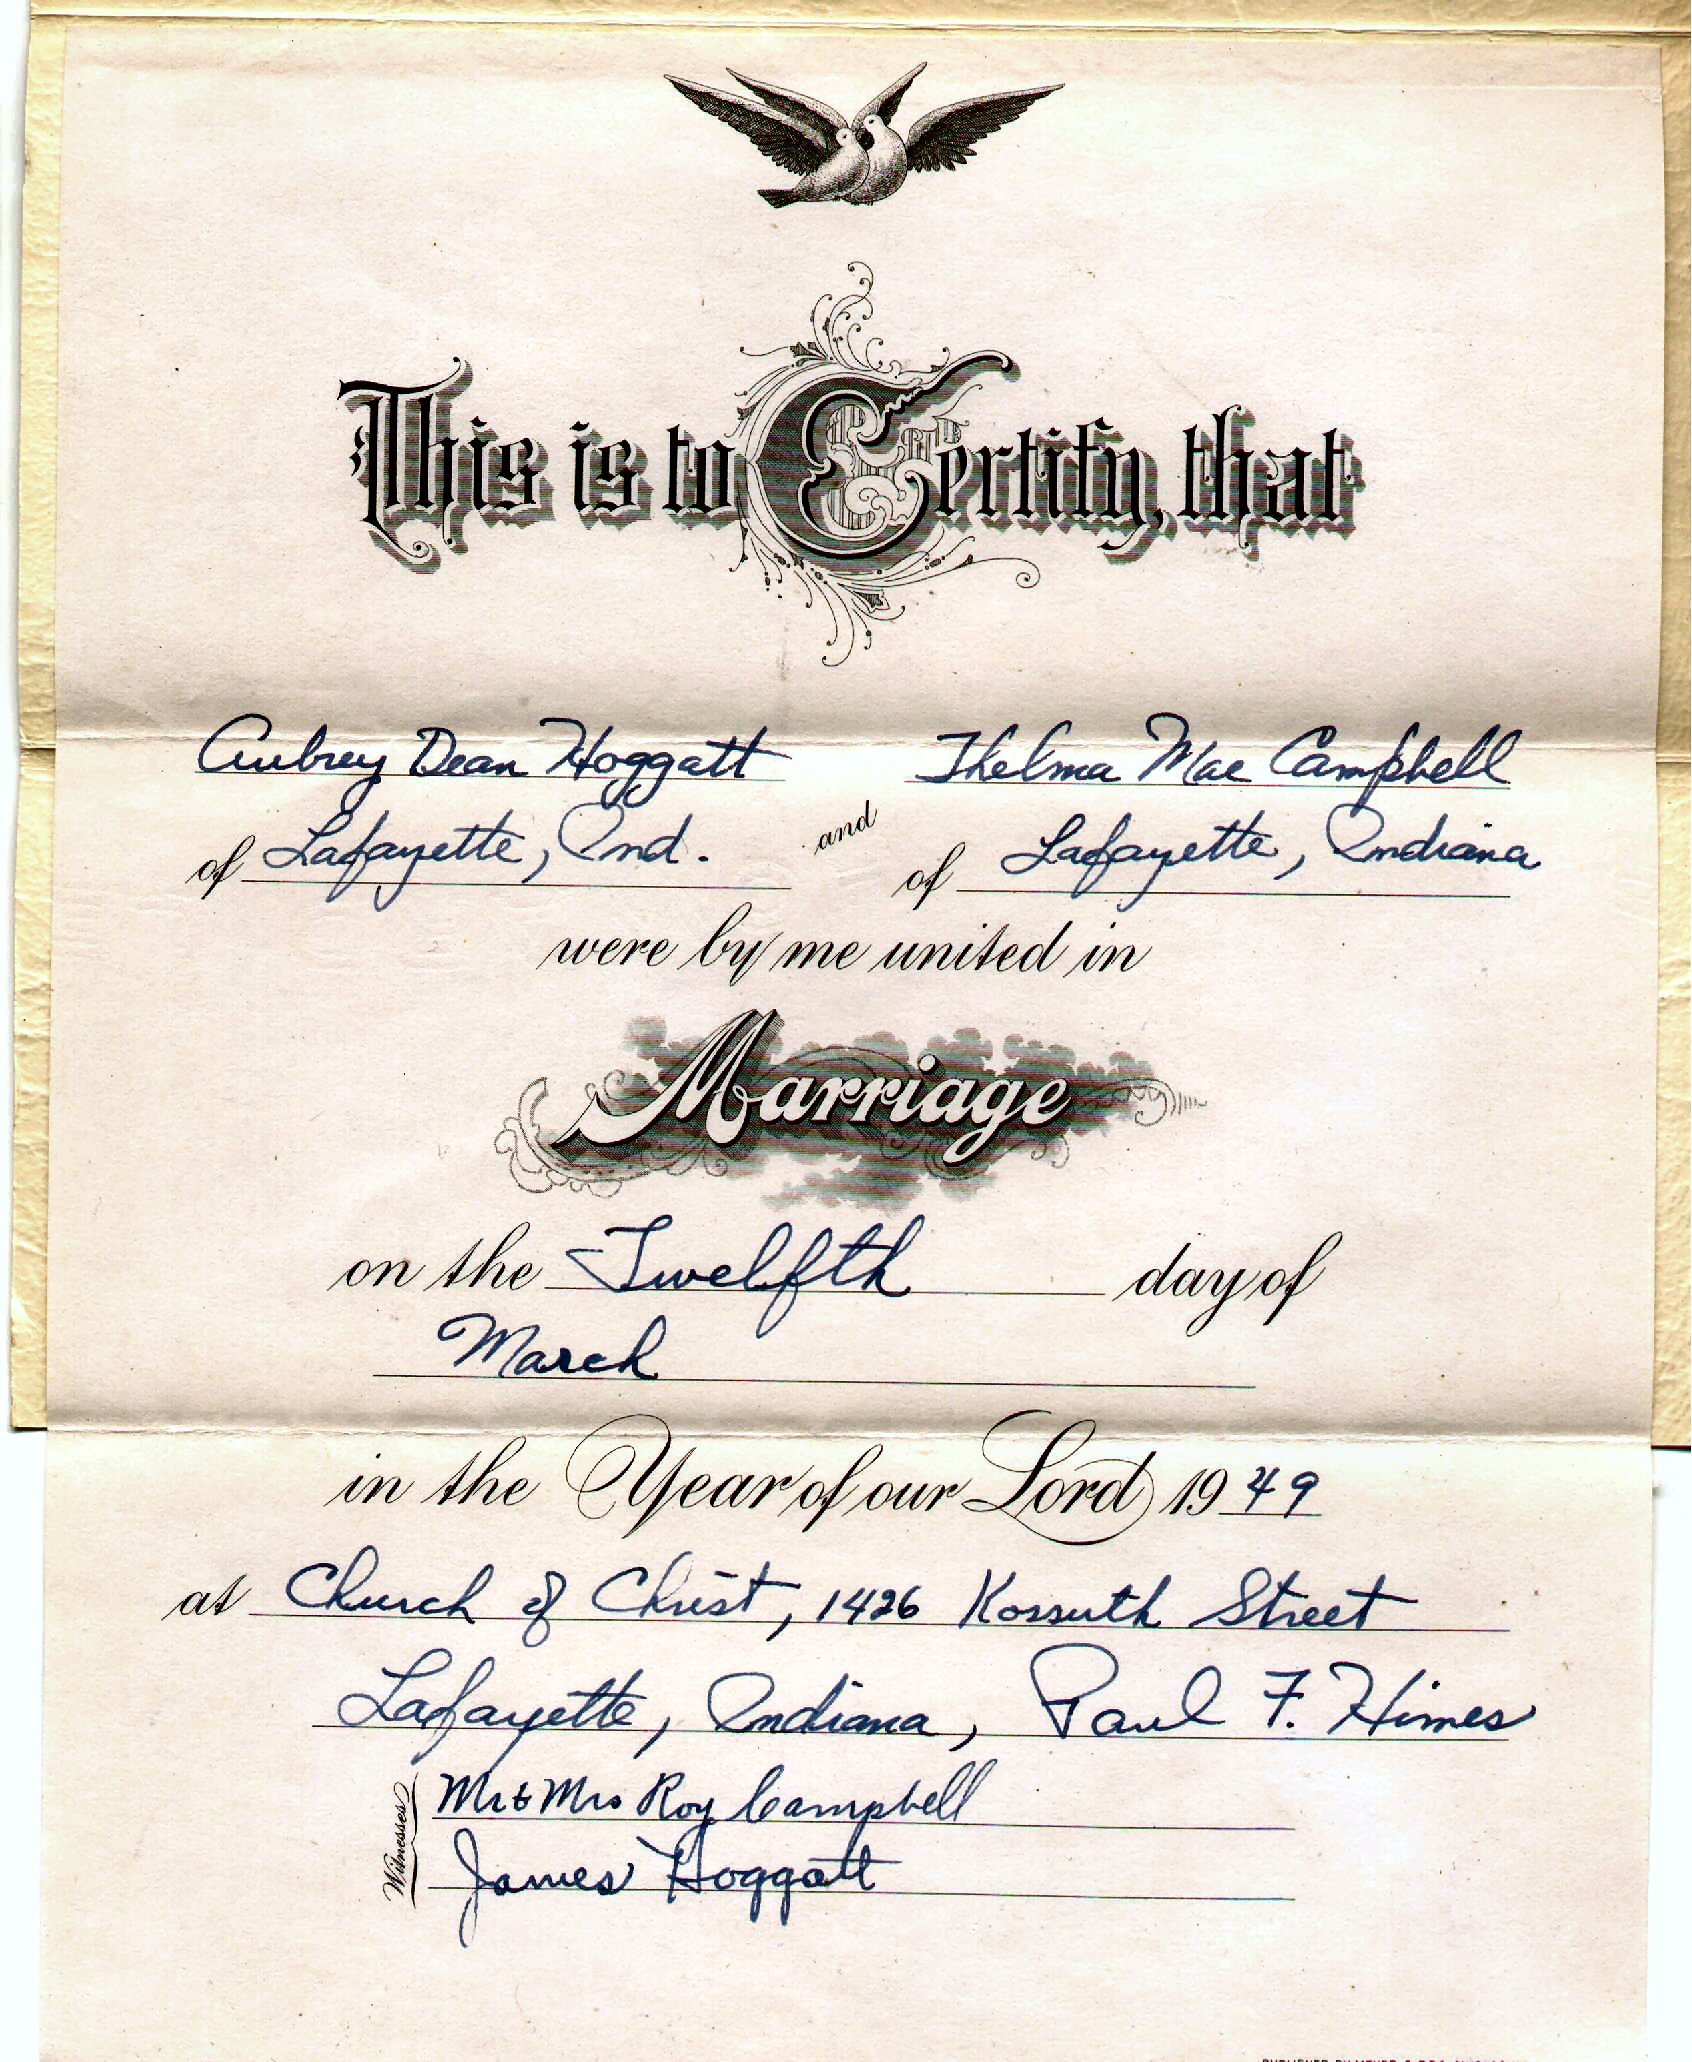 This is to Certify, that
Aubrey Dean Hoggatt Thelma Mae Campbell
of Lafayette, Ind. and of Lafayette, Indiana
were by me united in
Marriage
on the Twelfth day of
March
in the Year of our Lord 1949
at Church of Christ, 1426 Kossuth Street
Lafayette, Indiana, Paul F. Himes
Witnesses
Mr & Mrs Roy Campbell
James Hoggatt